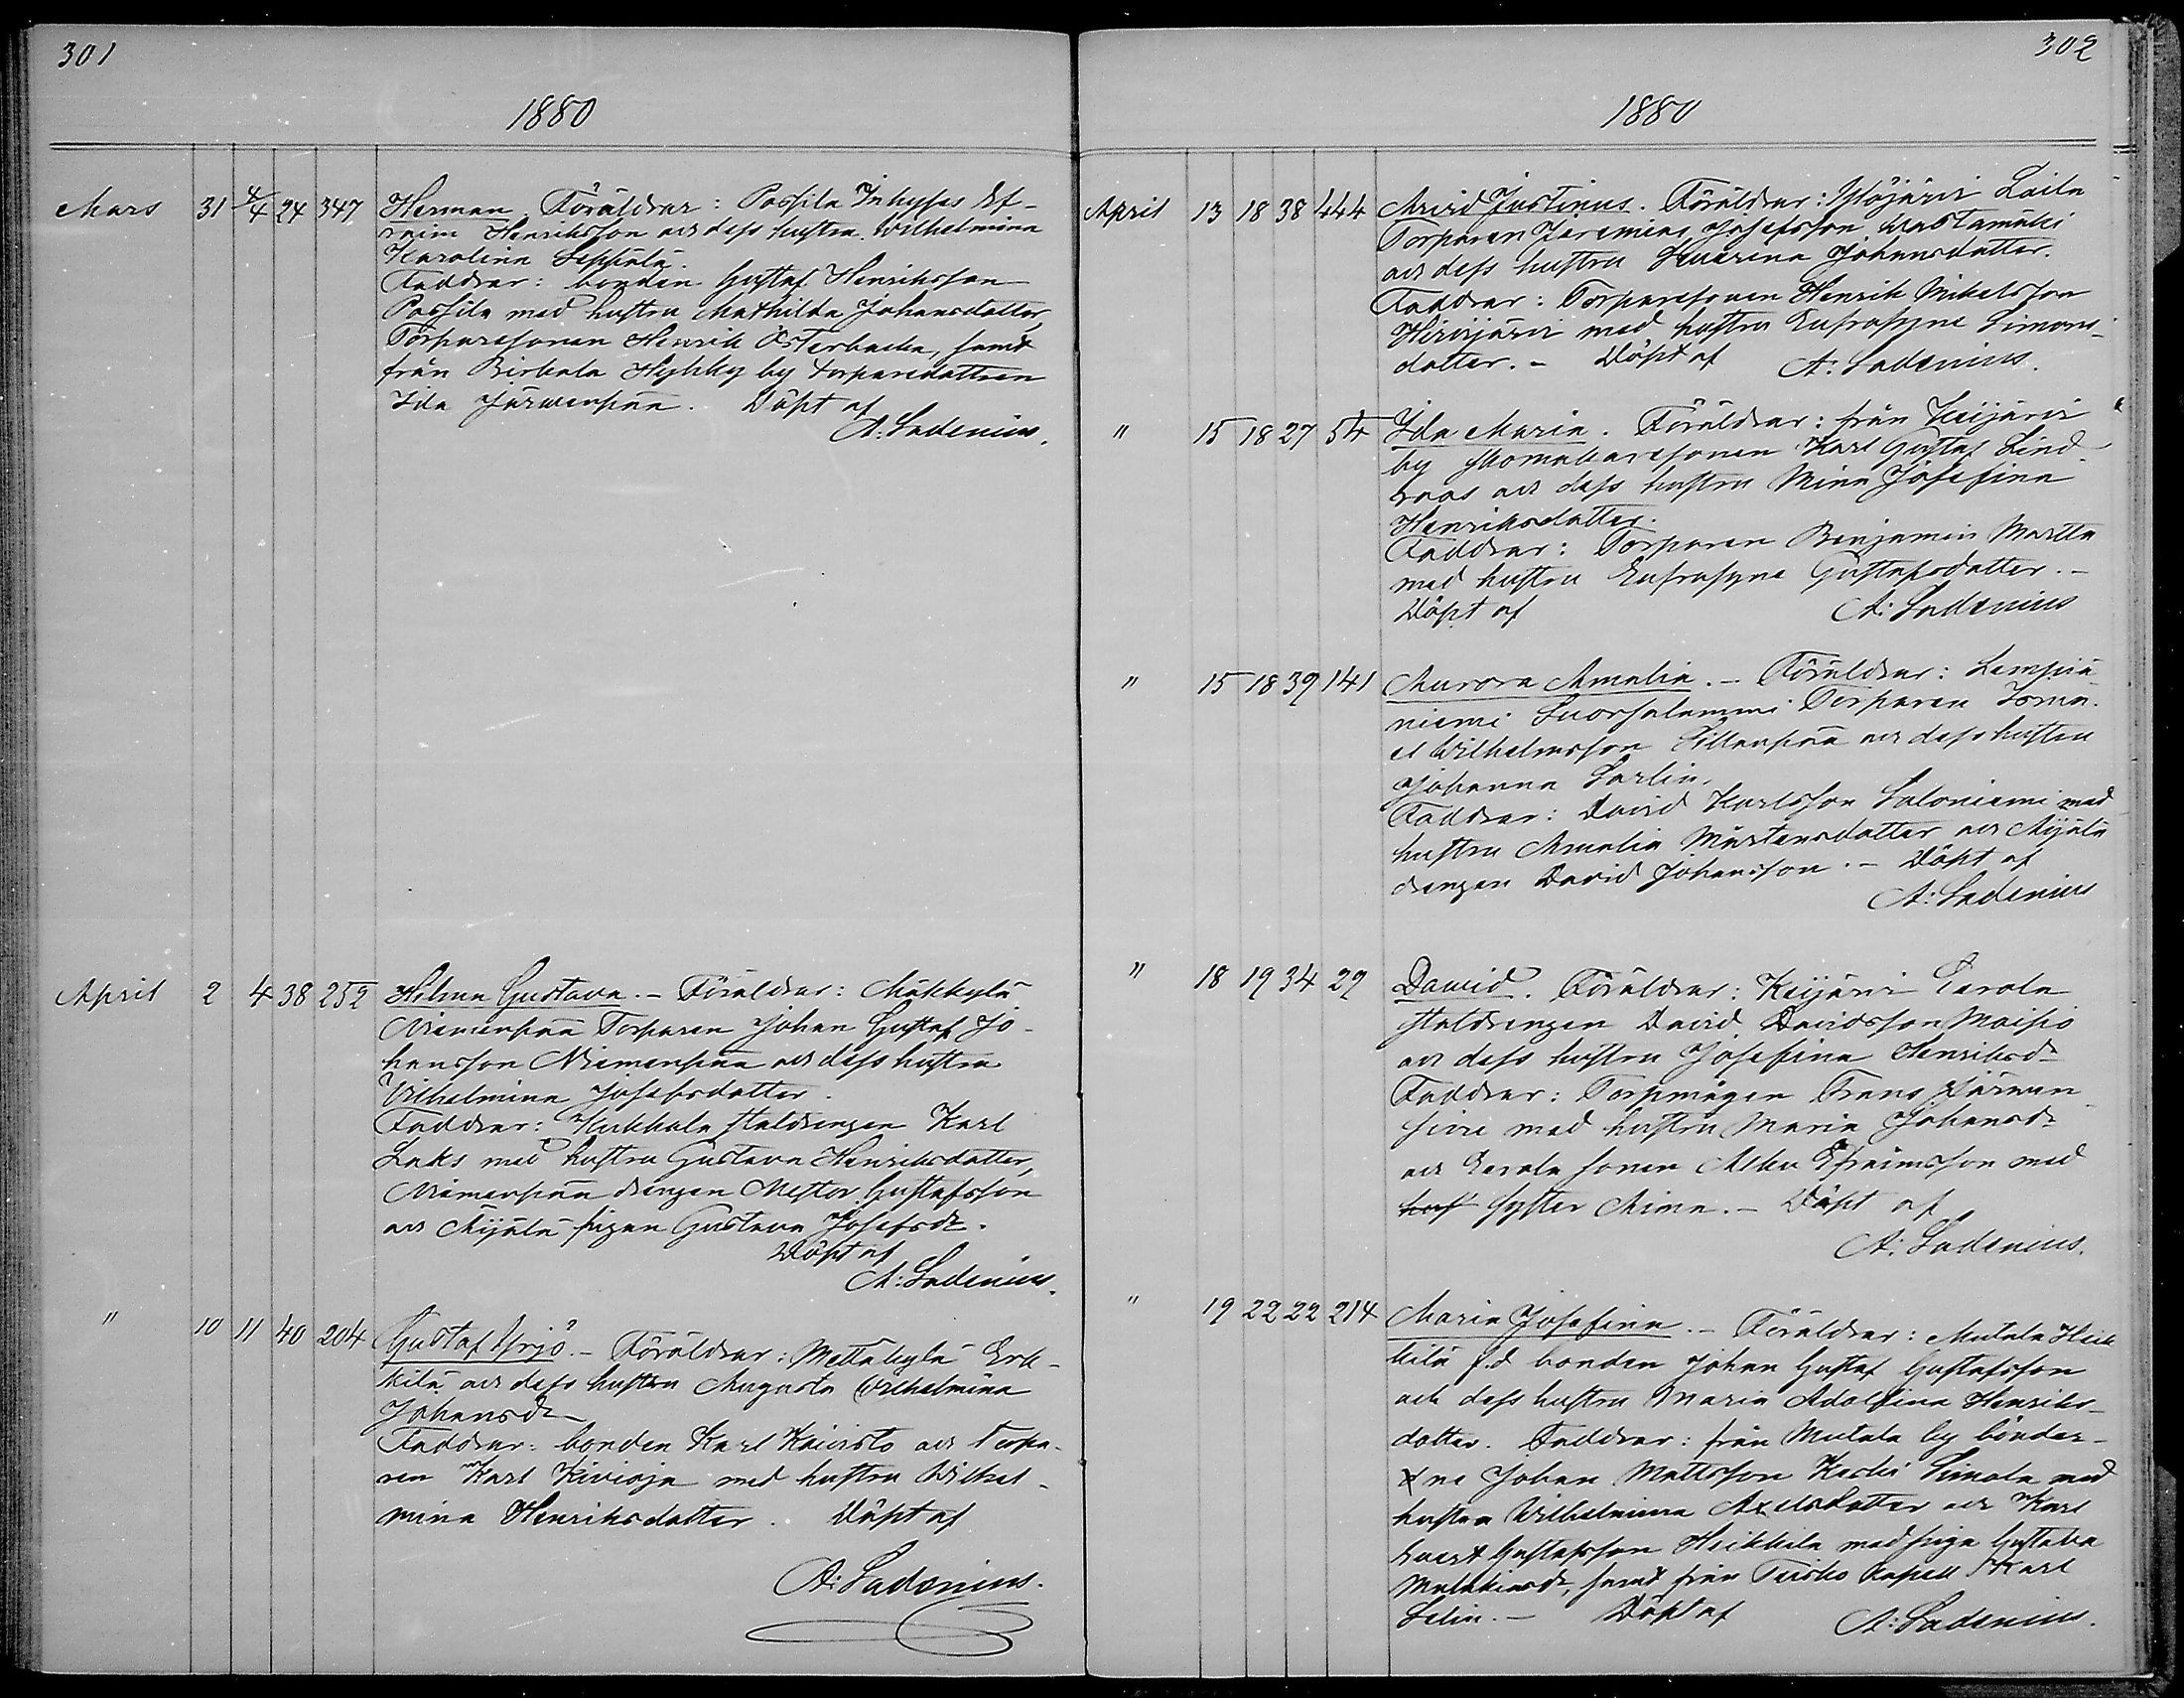 301
1880
Mars 31 4/4 24 347 Herman. Föräldrar: Possila Inhyses Ef-
raim Henriksson och dess hustru Wilhelmina
Karolina Seppälä.
Faddrar: bonden Gustaf Henriksson
Possila med hustru Mathilda Johansdotter,
Torparesonen Henrik Österbacka, samt
från Birkala Hyhky by torparedottren
Ida Järwenpää. Döpt af
A: Ladenius.
April 2 4 38 252 Hilma Gustava. – Föräldrar: Mäkkylä
Niemenpää Torparen Johan Gustaf Jo-
hansson Niemenpää och dess hustru
Vilhelmina Josefsdotter.
Faddrar: Kukkola staldrengen Karl
Laks med hustru Gustava Henriksdotter,
Niemenpää drengen Nestor Gustafsson
och Äijälä pigan Gustava Josefsdr.
Döpt af
A: Ladenius.
" 10 11 40 204 Gustaf Yrjö. – Föräldrar: Mettäkylä Erk-
kilä och dess hustru Augusta Wilhelmina
Johansdr
Faddrar: bonden Karl Koivisto och torpa-
ren Karl Kivioja med hustru Wilhel-
mina Henriksdotter. Döpt af
A: Ladenius.
302
1880
April 13 18 38 444 Arvid Justinus. Föräldrar: Ylöjärvi Laila
Torparen Jeremias Josefsson Wastamäki
och dess hustru Severina Johansdotter.
Faddrar: Torparesonen Henrik Mikelsson
Hirvijärvi med hustru Eufrosyne Simons-
dotter. – Döpt af A: Ladenius.
" 15 18 27 54 Ida Maria. Föräldrar: från Keijärvi
by skomakaresonen Karl Gustaf Lind-
roos och dess hustru Mina Josefina
Henriksdotter.
Faddrar: Torparen Benjamin Martta
med hustru Eufrosyne Gustafsdotter. –
Döpt af A: Ladenius
" 15 18 39 141 Aurora Amalia. – Föräldrar: Lempiä-
niemi Suorsalammi Torparen Isma-
el Wilhelmsson Sillanpää och dess hustru
Johanna Sarlin.
Faddrar: David Karlsson Saloniemi med
hustru Amalia Mårtensdotter och Äijälä
drengen David Johansson. – Döpt af
A: Ladenius
" 18 19 34 29 Dawid. Föräldrar: Keijärvi Eerola
staldrengen David Davidsson Moisio
och dess hustru Josefina Henriksdr
Faddrar: Torpmågen Frans Järwen-
sivu med hustru Maria Johansdr
och Eerola sonen Efraimsson med
syster Mina. – Döpt af
A: Ladenius.
" 19 22 22 214 Maria Josefina. – Föräldrar: Mutala Heik
kilä f.d bonden Johan Gustaf Gustafsson
och dess hustru Maria Adolfina Henriks-
dotter. Faddrar: från Mutala by bönder-
ne Johan Mattsson Keski Simola med
hustru Wilhelmina Axelsdotter och Karl
Evert Gustafsson Heikkilä med piga Gustava
Malakiasdr, samt från Teisko Kapell Karl
Selin. – Döpt af A: Ladenius.